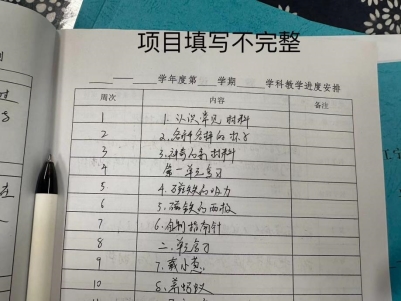 项目填写不完整
____—____学年度第____学期______学科教学进度安排
周次 内容 备注
1 1.认识常见材料
2 2.各种各样的
3 3.神奇的新材料
4 第一单元复习
5 4.磁铁的吸力
6 5.磁铁的两极
7 6.自制指南针
8 二单元复习
9 7.
10 8.养蚂蚁